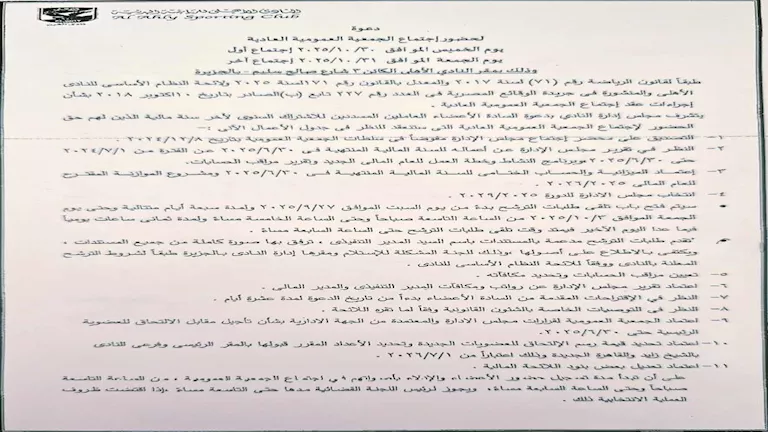 Al Ahly Sporting Club
دعوة
لحضور إجتماع الجمعية العمومية العادية
يوم الخميس الموافق ٢٠٢٥/١٠/٣٠ إجتماع أول
يوم الجمعة الموافق ٢٠٢٥/١٠/٣١ إجتماع آخر
وذلك بمقر النادى الأهلى الكائن ٣ شارع صالح سليم - بالجزيرة
طبقاً لقانون الرياضة رقم (٧١) لسنة ٢٠١٧ والمعدل بالقانون رقم ١٧١ لسنة ٢٠٢٥ ولائحة النظام الأساسى للنادى
الأهلى والمنشورة فى جريدة الوقائع المصرية فى العدد رقم ٢٢٧ تابع (ب) الصادر بتاريخ ١٠ اكتوبر ٢٠١٨ بشأن
إجراءات عقد إجتماع الجمعية العمومية العادية .
يتشرف مجلس إدارة النادى بدعوة السادة الأعضاء العاملين المسددين للاشتراك السنوى لآخر سنة مالية الذين لهم حق
الحضور لإجتماع الجمعية العمومية العادية التى ستنعقد للنظر فى جدول الأعمال الآتى :-
١- التصديق على محضر إجتماع مجلس الإدارة مفوضاً فى سلطات الجمعية العمومية بتاريخ ٢٠٢٤/١٢/٨
٢- النظر فى تقرير مجلس الإدارة عن أعماله للسنة المالية المنتهية فى ٢٠٢٥/٦/٣٠ عن الفترة من ٢٠٢٤/٧/١
حتى ٢٠٢٥/٦/٣٠ وبرنامج النشاط وخطة العمل للعام المالى الجديد وتقرير مراقب الحسابات.
٣- إعتماد الميزانية والحساب الختامى للسنة المالية المنتهية فى ٢٠٢٥/٦/٣٠ ومشروع الموازنة المقترح
للعام المالى ٢٠٢٦/٢٠٢٥ .
٤- انتخاب مجلس الإدارة للدورة ٢٠٢٩/٢٠٢٥
• سيتم فتح باب تلقى طلبات الترشح بدءً من يوم السبت الموافق ٢٠٢٥/٩/٢٧ ولمدة سبعة أيام متتالية وحتى يوم
الجمعة الموافق ٢٠٢٥/١٠/٣ من الساعة التاسعة صباحاً وحتى الساعة الخامسة مساءً ولمدة ثمانى ساعات يومياً
فيما عدا اليوم الأخير فيمتد وقت تلقى طلبات الترشح حتى الساعة السابعة مساءً.
• تقدم طلبات الترشح مدعمة بالمستندات باسم السيد المدير التنفيذى ، ترفق بها صورة كاملة من جميع المستندات ،
ويكتفى بالاطلاع على أصولها ،وذلك للجنة المشكلة للإستلام ومقرها إدارة النادى بالجزيرة طبقاً لشروط الترشح
المعلنة بالنادى ووفقاً للائحة النظام الأساسى للنادى.
٥- تعيين مراقب الحسابات وتحديد مكافآته.
٦- اعتماد تقرير مجلس الإدارة عن رواتب ومكافآت المدير التنفيذى والمدير المالى.
٧- النظر فى الإقتراحات المقدمة من السادة الأعضاء بدءاً من تاريخ الدعوة لمدة عشرة أيام.
٨- النظر فى التوصيات الخاصة بالشئون القانونية وفقاً لما تقره اللائحة .
٩- اعتماد الجمعية العمومية لقرارات مجلس الادارة والمعتمدة من الجهة الادارية بشأن تأجيل مقابل الالتحاق للعضوية
الرئيسية حتى ٢٠٢٥/٦/٣٠.
١٠- اعتماد تحديد قيمة رسم الإلتحاق للعضويات الجديدة وتحديد الأعداد المقرر قبولها بالمقر الرئيسى وفرعى النادى
بالشيخ زايد والقاهرة الجديدة وذلك اعتباراً من ٢٠٢٦/٧/١
١١- اعتماد تعديل بعض بنود اللائحة المالية .
على أن تبدأ مدة تسجيل حضور الأعضاء والإدلاء بأصواتهم فى إجتماع الجمعية العمومية ، من الساعة التاسعة
صباحاً وحتى الساعة السابعة مساءً، ويجوز لرئيس اللجنة القضائية مدها حتى التاسعة مساءً ،إذا اقتضت ظروف
العملية الانتخابية ذلك .